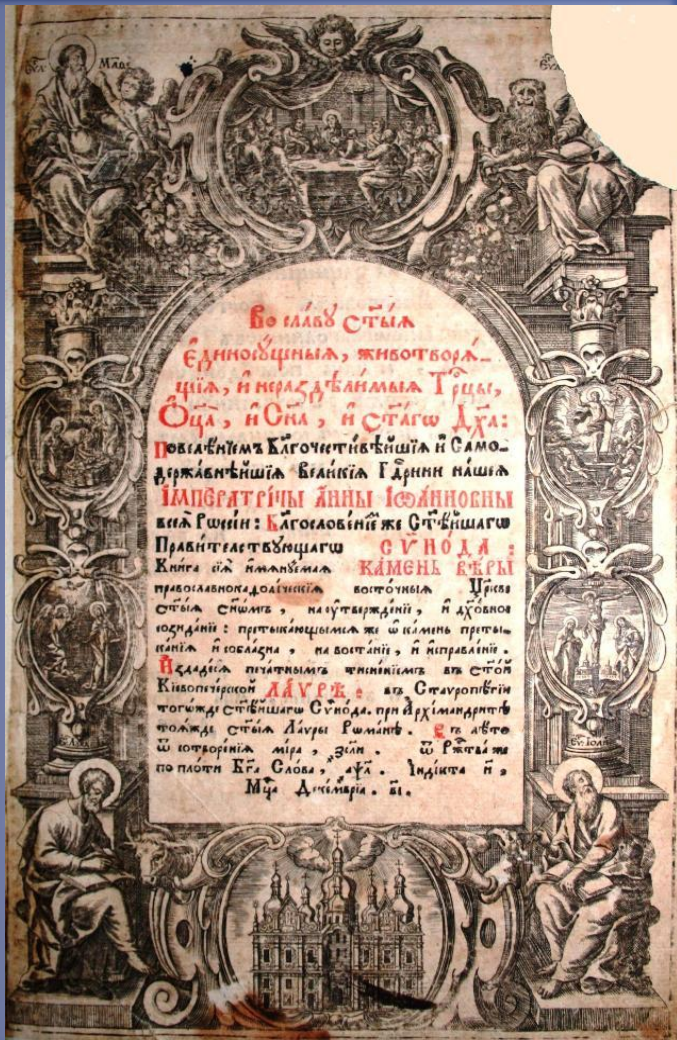 Еѵл Матѳ
Во сла́вꙋ ст҃ы́ѧ
Є҆диносꙋ́щныѧ, животворѧ́-
щїѧ, и҆ нераздѣли́мыѧ Трⷪ҇цы,
Ѻ҆ц҃а̀, и҆ Сн҃а, и҆ ст҃а́гѡ Дх҃а:
Повелѣ́нїемъ Бл҃гочести́вѣйшїѧ и҆ Само-
держа́внѣйшїѧ Вели́кїѧ Гдⷭ҇рни на́шеѧ
І҆МПЕРАТРИ́ЦЫ А҆́ННЫ І҆Ѡ҆А́ННОВНЫ
всеѧ̀ Рѡссі́и: Бл҃гослове́нїе же Ст҃ѣ́йшагѡ
Прави́телствꙋющагѡ СѶНО́ДА :
Кни́га сїѧ̀ и҆мѧнꙋ́емаѧ КА́МЕНЬ ВѢ́РЫ
восто́чныѧ Цр҃кве
ст҃ы́ѧ сынѡ́мъ, на ᲂу҆твержде́нїе, и҆ дꙋхо́вное
созида́нїе : претыка́ющымсѧ же ѡ҆ ка́мень преты-
ка́нїѧ и҆ собла́зна, на воста́нїе, и҆ и҆справле́нїе.
И҆здаде́сѧ печа́тнымъ тисне́нїемъ въ ст҃о́й
Кїевопече́рской ЛА́ѴРѢ : въ Ставропи́гїи
тогѡ́жде ст҃ѣ́йшагѡ Сѷно́да. при А҆рхїмандри́тѣ
тоѧ́жде ст҃ы́ѧ Ла́ѵры Рѡма́нѣ. Въ лѣ́то
ѿ сотворе́нїѧ мі́ра, ѿ Ржⷭ҇тва̀ же
по пло́ти Бг҃а Сло́ва, ҂аѱл. І҆нді́кта и҃,
Мцⷭ҇а Деке́мврїа. в҃і.
Еѵ Іѡан